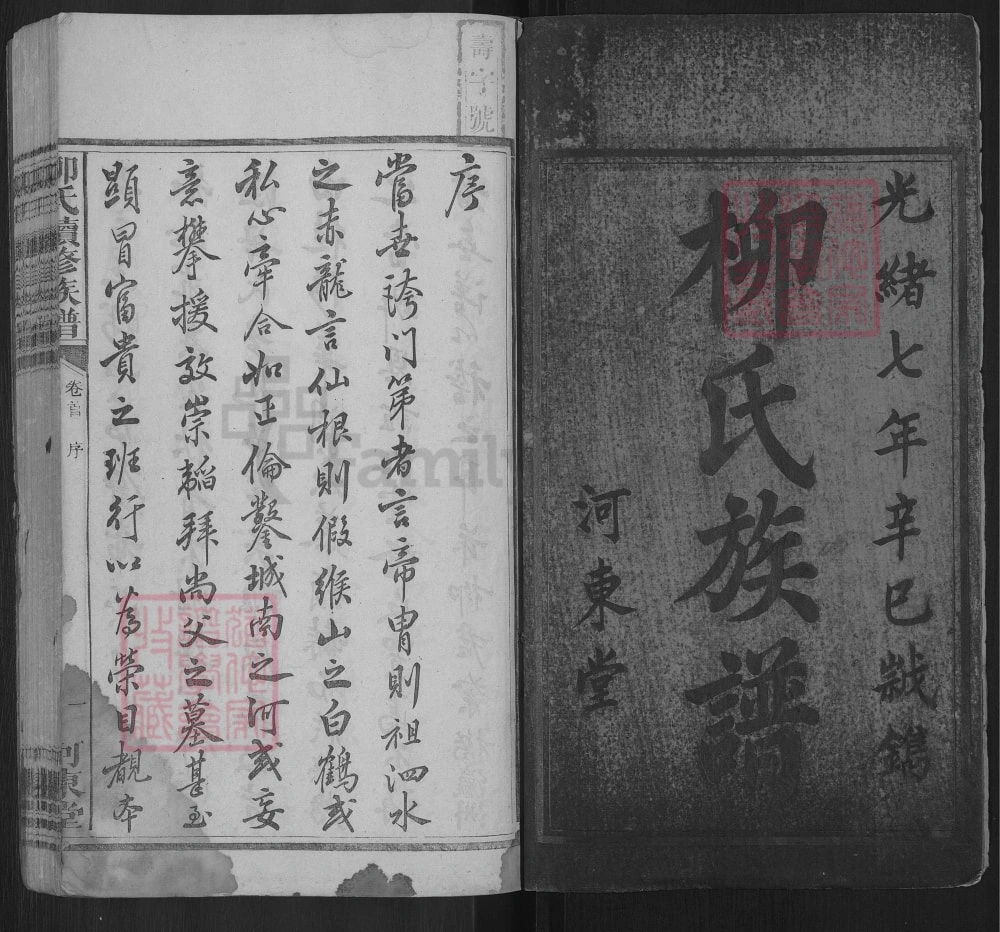 光緒七年辛巳鋟鐫
柳氏族譜
河東堂
壽字號
序
當世誇門第者言帝胄則祖泗水
之赤龍言仙根則假緱山之白鶴或
私心牽合如正倫鑿城南之河或妄
意攀援效崇韜拜尚父之墓甚至
顯冒富貴之班行以為榮目覩本
柳氏續修族譜
卷首 序
一
河東堂